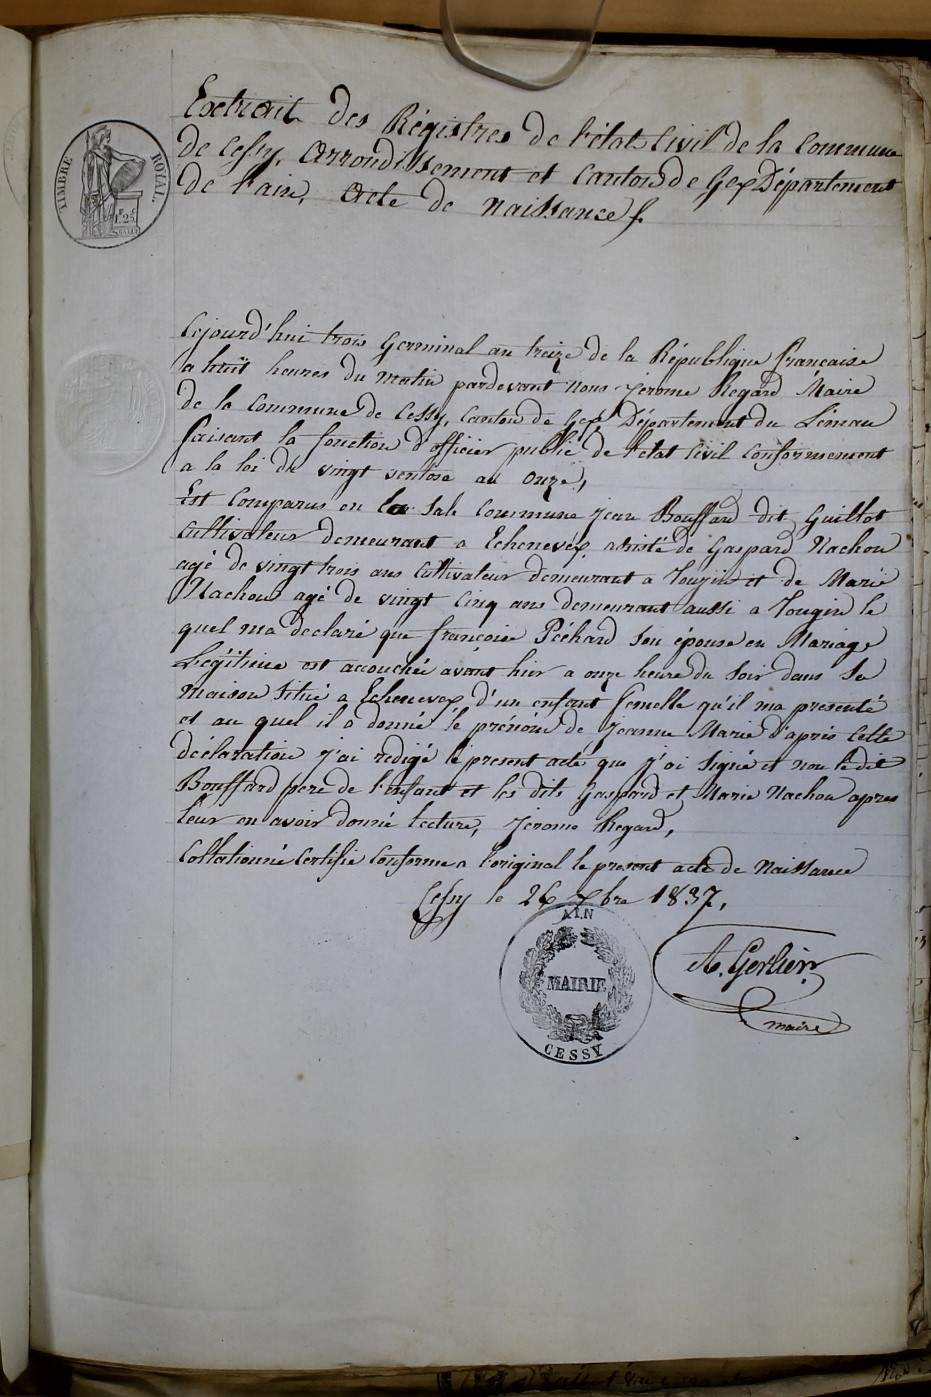 Extrait des Régistres de l'état Civil de la Commune
de Cessy, Arrondissement et Canton de Gex Département
de l'ain, Acte de Naissance
TIMBRE ROYAL
Cejourd'hui trois Germinal an treize de la République française
a huit heures du matin pardevant nous Jérome Regard Maire
de la Commune de Cessy, Canton de Gex Département du Léman
faisant la fonction d'officier public de l'état Civil conformement
a la loi du vingt ventose an onze,
Est Comparus en la Sale Commune Jean Bouffard dit Guillot
Cultivateur demeurant a Echenevex, assisté de Gaspard Nachon
agé de vingt trois ans Cultivateur demeurant a Tougin et de Marie
Nachon agé de vingt Cinq ans demeurant aussi a Tougin le
quel ma declaré que françoise Péchard son épouse en Mariage
Légitime est accouchée avant hier a onze heure du Soir dans Sa
maison Situé a Echenevex d'un enfant femelle qu'il ma presenté
et au quel il a donné le prénom de Jeanne Marie d'après Cette
déclaration j'ai redigé le present acte que j'ai Signé et non le dit
Bouffard pere de l'enfant et les dits Gaspard et Marie Nachon apres
leur en avoir donné lecture, Jerome Regard,
Collationné Certifié Conforme a l'original le present acte de Naissance
Cessy le 26 7bre 1837,
AIN
MAIRIE
CESSY
A. Gerlier
maire